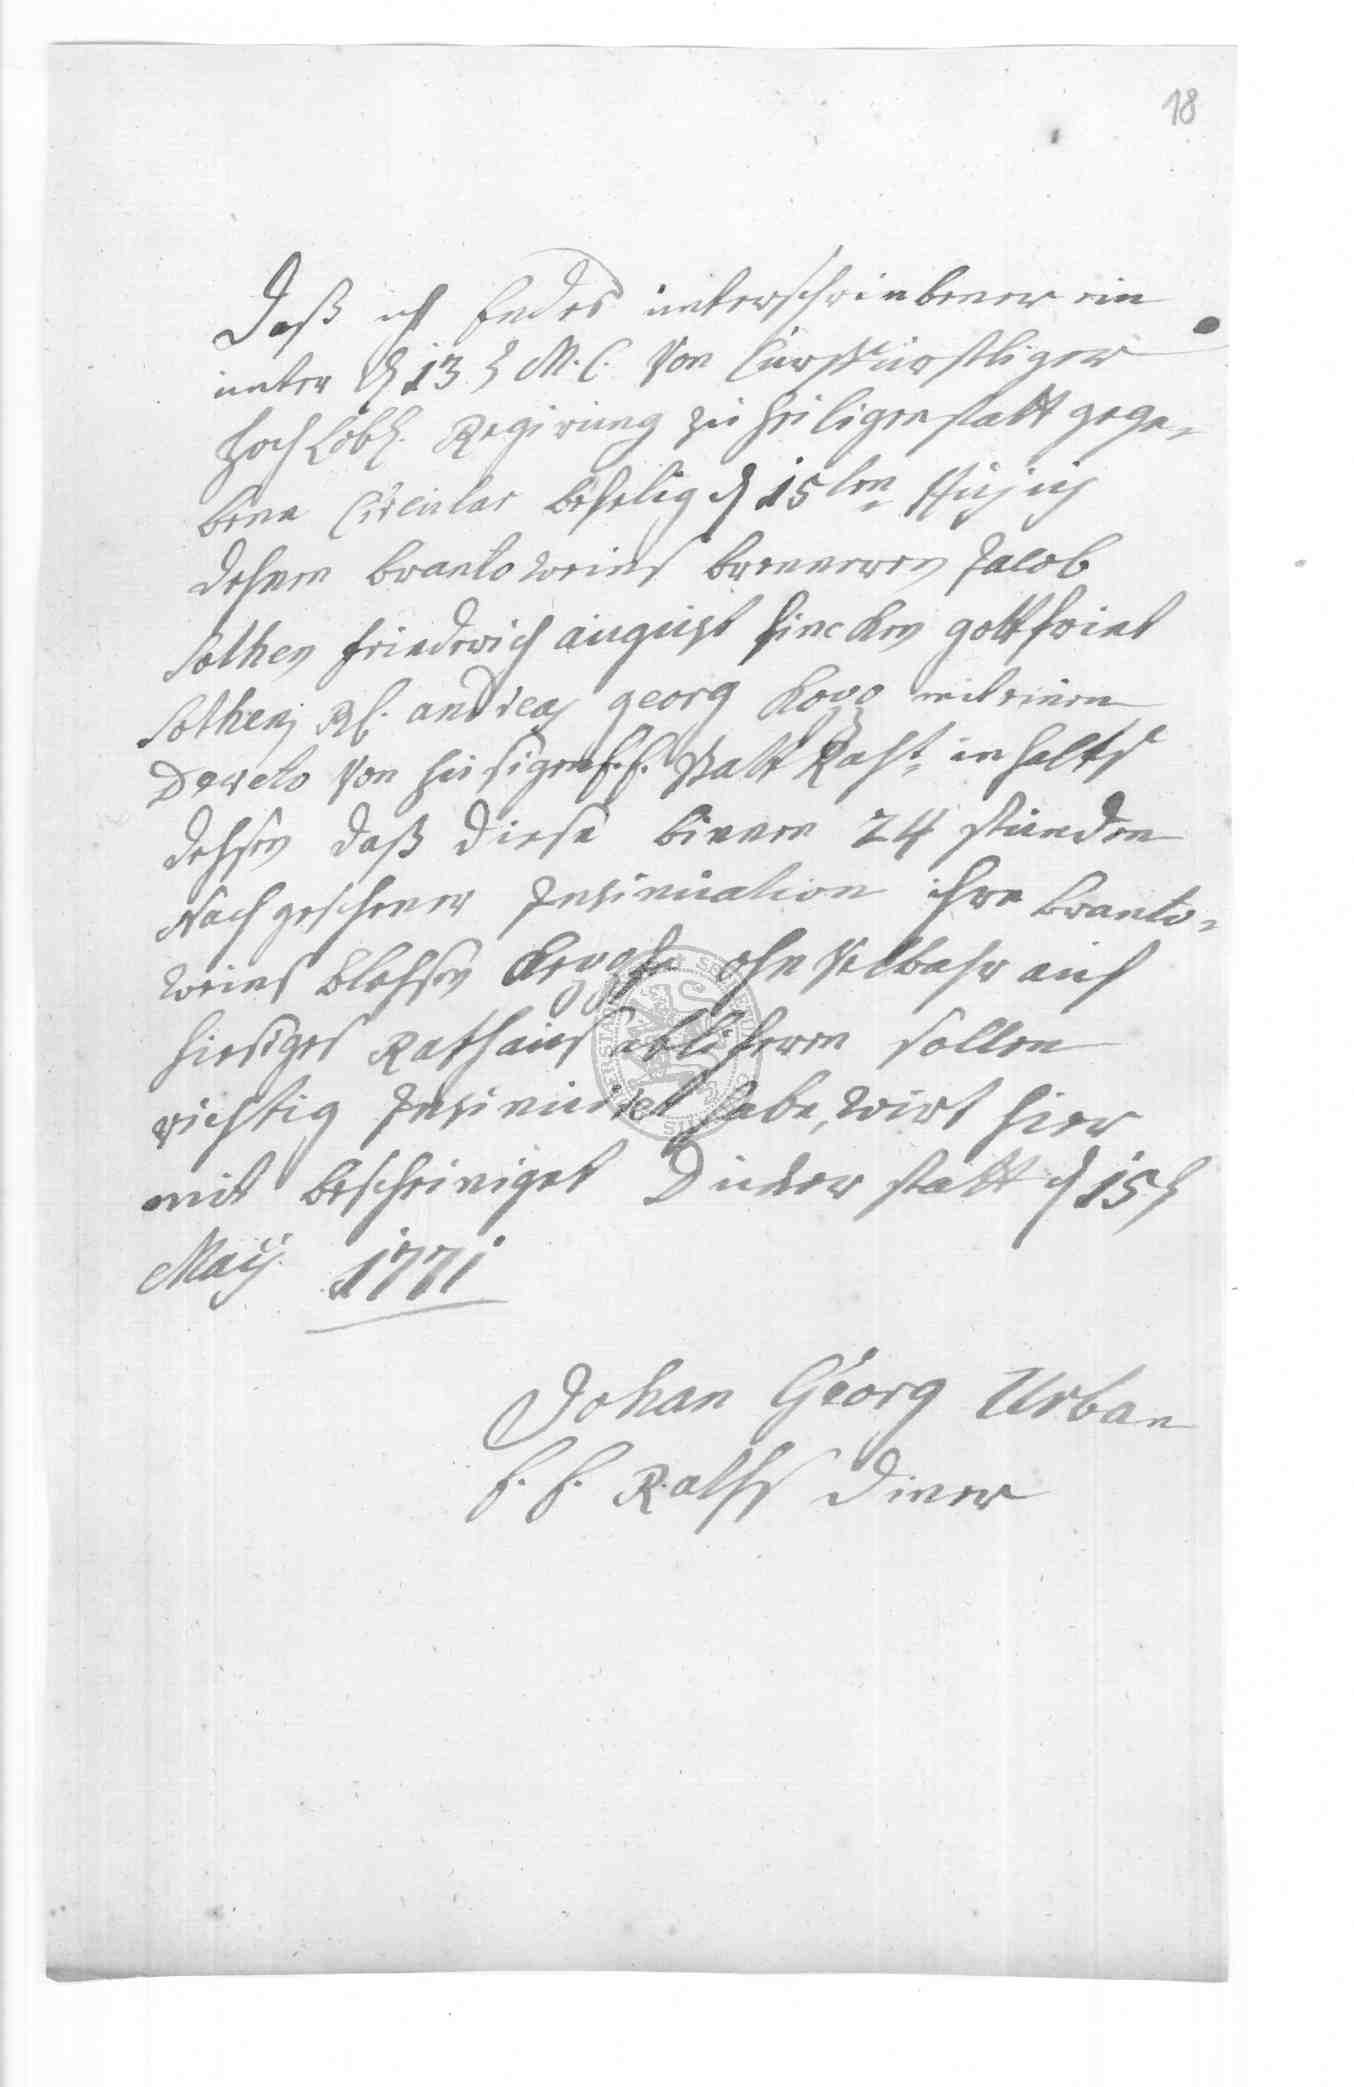 18
Daß ich Endes unterschriebener ein
unter d 13 t M. C. Von Curfürstliger
Hoch Löbl. Regirung zu Heiligenstatt gege-
bene Circular befelig d 15ten Hujus
dehnen brantoweins brenneren Jacob
Sothen friedrich august Hincken gottfriet
Sothen andreas georg mit einen
Dereto Von hisigen E. E. Statt Raht inhalts
dessen daß diese binnen 24 stunden
Nach geschener Insinuation ihre branto-
weins blasen ohn auf
hiesiges Rathaus abliferen sollen
richtig Insinuiret habe, wirt hier
mit bescheiniget Duderstatt d 15 t
Maÿ 1771
Johan Georg Urban
E. E. Raths Diner